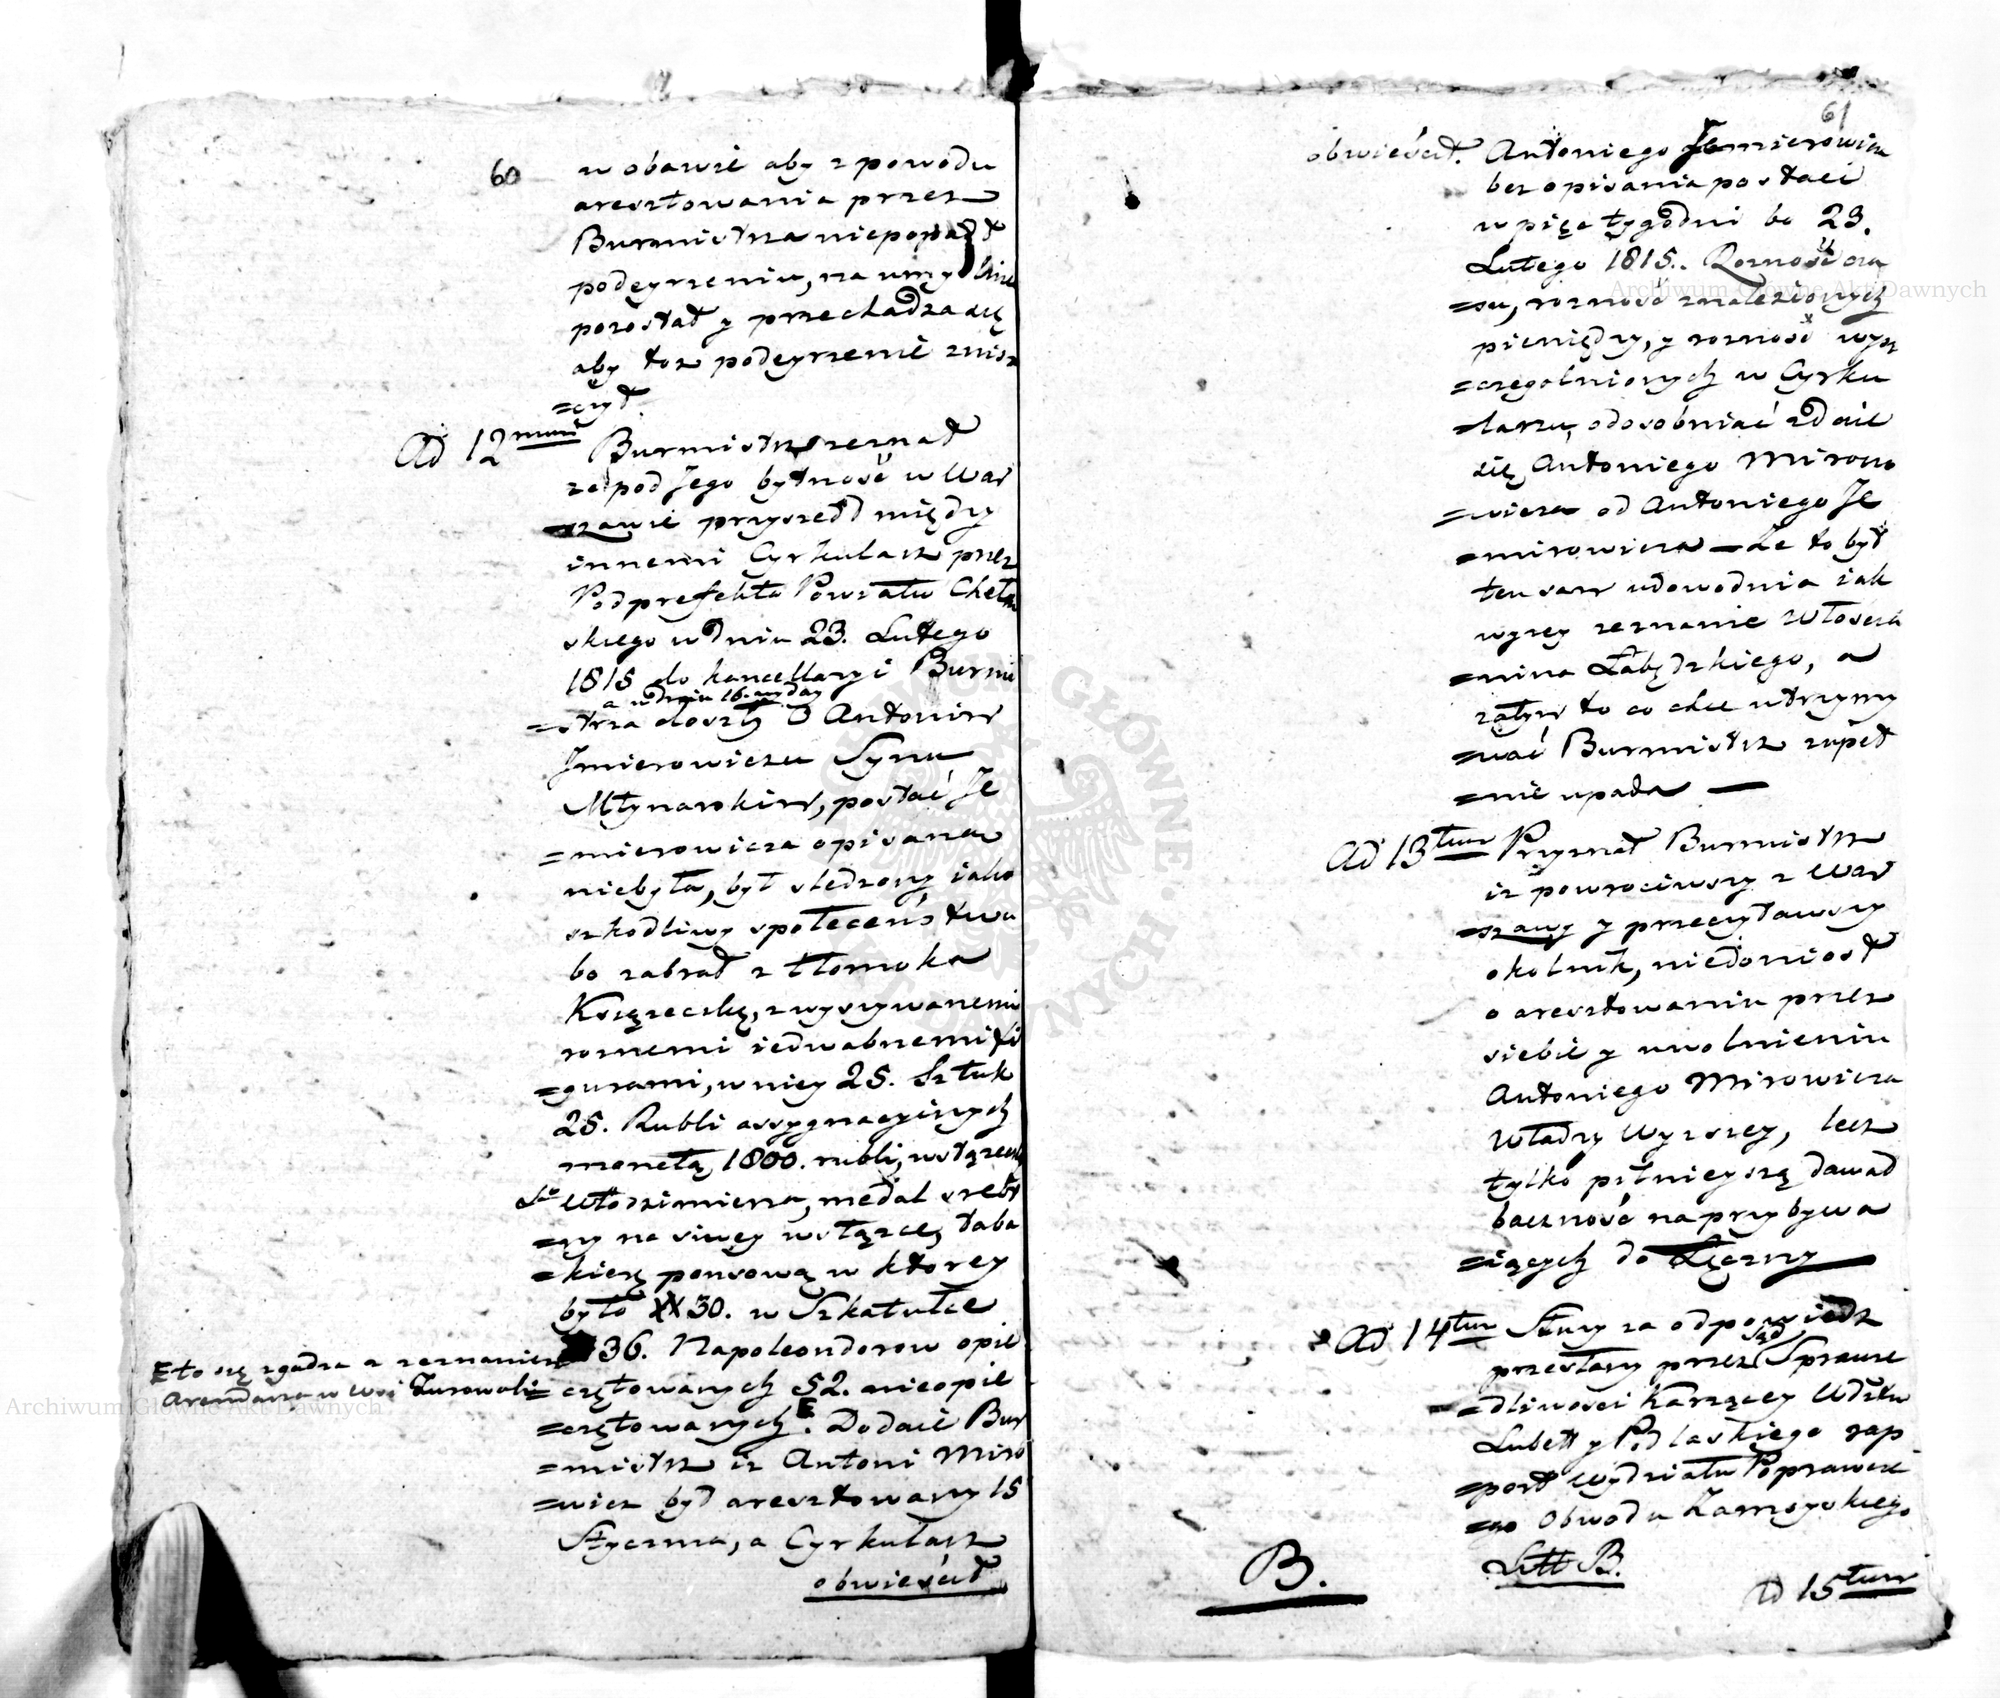 60
w obawie aby z powodu
aresztowania przez
Burmistrza niepopadł
podeyrzeniu, na umyślnie
pozostał y przechadza się
aby toz podeyrzenie znisz
=czył.
Ad 12mum Burmistrz zeznał
ze pod Jego bytność w War
=szawie przyszedł między
innemi Cyrkularz przez
Podprefekta Powiatu Chełm
skiego w dniu 23. Lutego
1815 do kancellaryi Burmi
a w dniu 16. wyday
=strza doszły O Antonim
Jmierowiczu Synu
Młynarskim, postać Je
=mierowicza opisana
niebyła, był sledzony iako
szkodliwy społeceństwu
bo zabrał z tłomoka
Xsięzeczkę, z wyszywanemi
roznemi iedwabnemi fi
=gurami, w niey 25. Sztuk
25. Rubli assygnacyinych
monetą 1800. rubli, wstązeczkę
Sgo Włodzimierza, medal srebr
=ny na siwey wstązce, taba
=kierę ponsową w ktorey
było ## 30. w Szkatułce
36. Napoleondorow opie
=czętowanych 52. nieopie
=czętowanych. E Dodaie Bur
=mistrz iz Antoni Miro
=wicz był aresztowany 15
Stycznia, a Cyrkularz
obwieścił
E to się zgadza z zeznaniem
Arendarza w Wsi Zurowoli
61
obwieścił. Antoniego Jemierowicza
bez opisania postaci
w pięc tygodni bo 23.
Lutego 1815.. Rozność cza
=su, rozność znalezionych
pieniędzy, y roznosć wysz
=czegolnionych w Cyrku
=larzu, odosobniać zdaie
się Antoniego Mirono
=wicza od Antoniego Je
=mirowicza — Ze to był
ten sam udowodnia iak
wyzey zeznanie Włoscia
=nina Łabędzkiego, a
zatym to co chce utrzymy
=wać Burmistrz zupeł
=nie upada —
Ad 13tum Przyznał Burmistrz
iz powrociwszy z War
=szawy y przeczytawszy
okolnik, niedoniosł
o aresztowaniu przez
siebie y uwolnieniu
Antoniego Mirowicza
Władzy Wyzszey, lecz
tylko pilnieyszą dawał
baczność na przybywa
=iących do Łęczny
Ad 14tum Słuzy za odpowiedz
przesłany przez Sąd Sprawie
=dliwosci Karzącey Wdztw
Lubell y Podlaskiego rap
=port Wydziału Poprawcze
=go Obwodu Zamoyskiego
Litt B.
B.
Ad 15tum
Archiwum Główne Akt Dawnych
Archiwum Główne Akt Dawnych